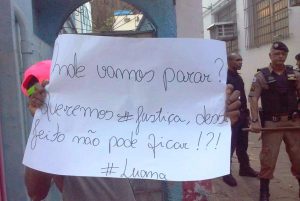 Onde vamos parar?
queremos #Justiça, desse
jeito não pode ficar!?!
#Luana